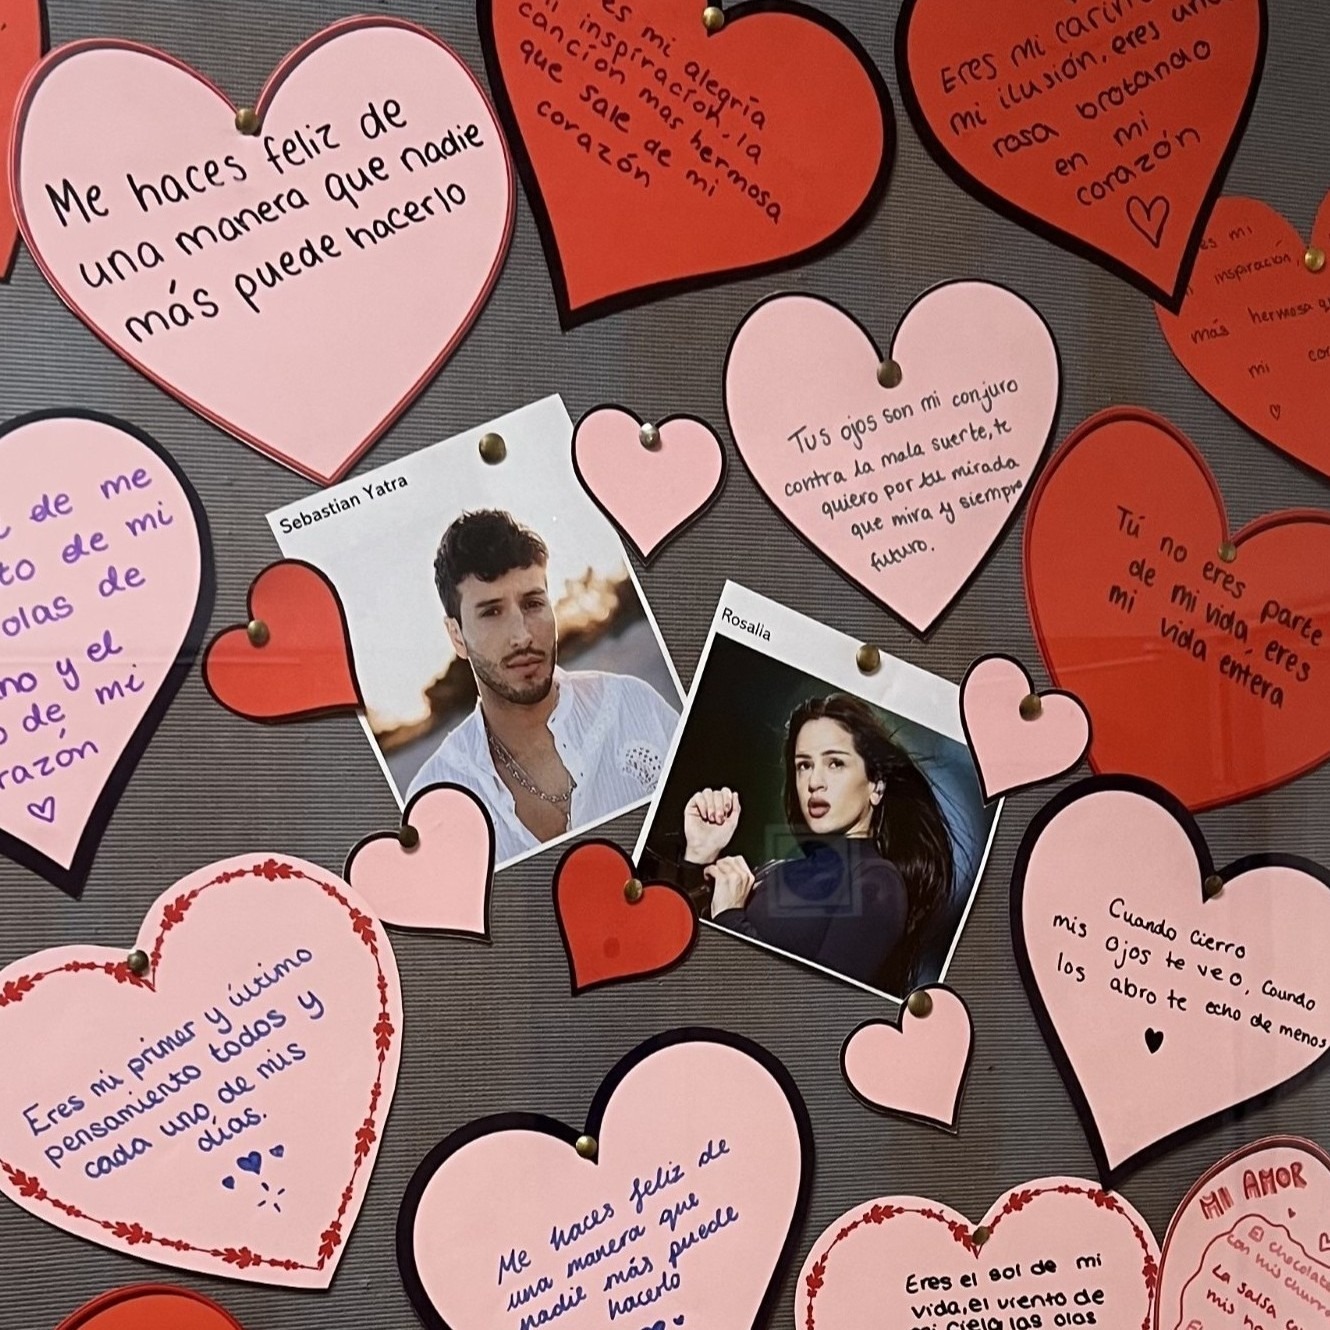 Me haces feliz de
una manera que nadie
más puede hacerlo
es mi alegría
inspiración, la
canción mas hermosa
que sale de mi
corazón
Eres mi cariño
mi ilusión, eres una
rosa brotando
en mi
corazón
es mi
inspiración,
más hermosa
mi
Tus ojos son mi conjuro
contra la mala suerte, te
quiero por tu mirada
que mira y siempre
futuro.
Tú no eres parte
de mi vida, eres
mi vida entera
de me
to de mi
olas de
no y el
de mi
razón
Sebastian Yatra
Rosalia
Cuando cierro
mis ojos te veo, Coundo
los abro te echo de menos
Eres mi primer y último
pensamiento todos y
cada uno de mis
días.
Me haces feliz de
una manera que
nadie más puede
hacerlo
Eres el sol de mi
vida, el viento de
mi cielo, las olas
MI AMOR
El chocolate
con mis churro
La salsa
mis